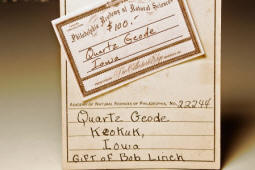 Philadelphia Academy of Natural Sciences
$100.-
Quartz Geode
Iowa
ACADEMY OF NATURAL SCIENCES OF PHILADELPHIA, NO. 22244
Quartz Geode
Keokuk,
Iowa
Gift of Bob Linck